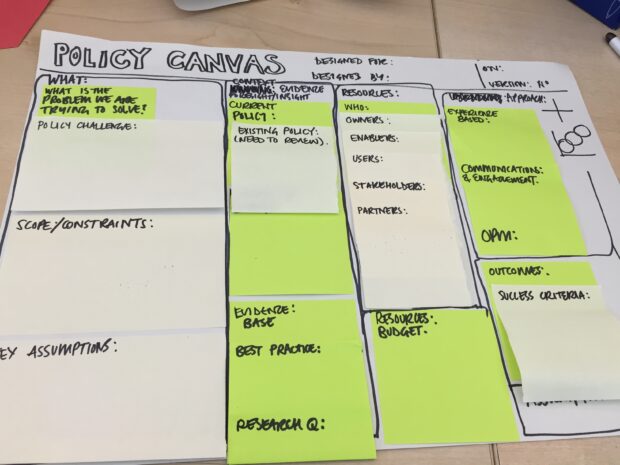 POLICY CANVAS
DESIGNED FOR:
DESIGNED BY:
ON:
VERSION: No
WHAT:
WHAT IS THE
PROBLEM WE ARE
TRYING TO SOLVE?
POLICY CHALLENGE:
SCOPE/CONSTRAINTS:
EY ASSUMPTIONS:
CONTEXT
EVIDENCE
FORESIGHT/INSIGHT
CURRENT
POLICY:
EXISTING POLICY:
(NEED TO REVIEW).
EVIDENCE:
BASE
BEST PRACTICE:
RESEARCH Q:
RESOURCES:
WHO:
OWNERS:
ENABLERS:
USERS:
STAKEHOLDERS:
PARTNERS:
RESOURCES:
BUDGET.
APPROACH:
EXPERIENCE
BASED:
COMMUNICATIONS:
& ENGAGEMENT.
OPM:
OUTCOMES.
SUCCESS CRITERIA: